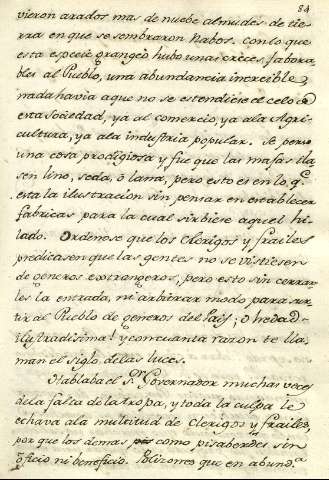 84
vieron arados mas de nuebe almudes de tie-
rra en que se sembraron Nabos. Con lo que
esta especie grangeò hubo unas creces, fabora-
bles al Pueblo, una abundancia increible,
nada havia a que no se estendiese el celo de
esta Sociedad, ya al comercio, ya ala Agri-
cultura, ya ala industria popular. Se pensò
una cosa prodigiosa y fue que las masas ila-
sen lino, seda, ò lana, pero esto es en lo q.e
esta la ilustracion sin pensar en establecer
fabricas para la cual sirbiese aquel hi-
lado. Ordenose que los Clerigos y frailes
predicasen que las gentes no se vistiesen
de generos extrangeros, pero esto sin cerrar-
les la entrada, ni arbitrar modo para sur-
tir al Pueblo de generos del Pais; ò hedad
Ilustradisima! y con cuanta razon te lla-
man el siglo delas luces.
Hablaba el S.r Governador muchas veces
de la falta de la tropa, y toda la culpa le
echava ala multitud de Clerigos y frailes,
por que los demas como pisaberdes sin
oficio ni beneficio. Polizones que en abund.a